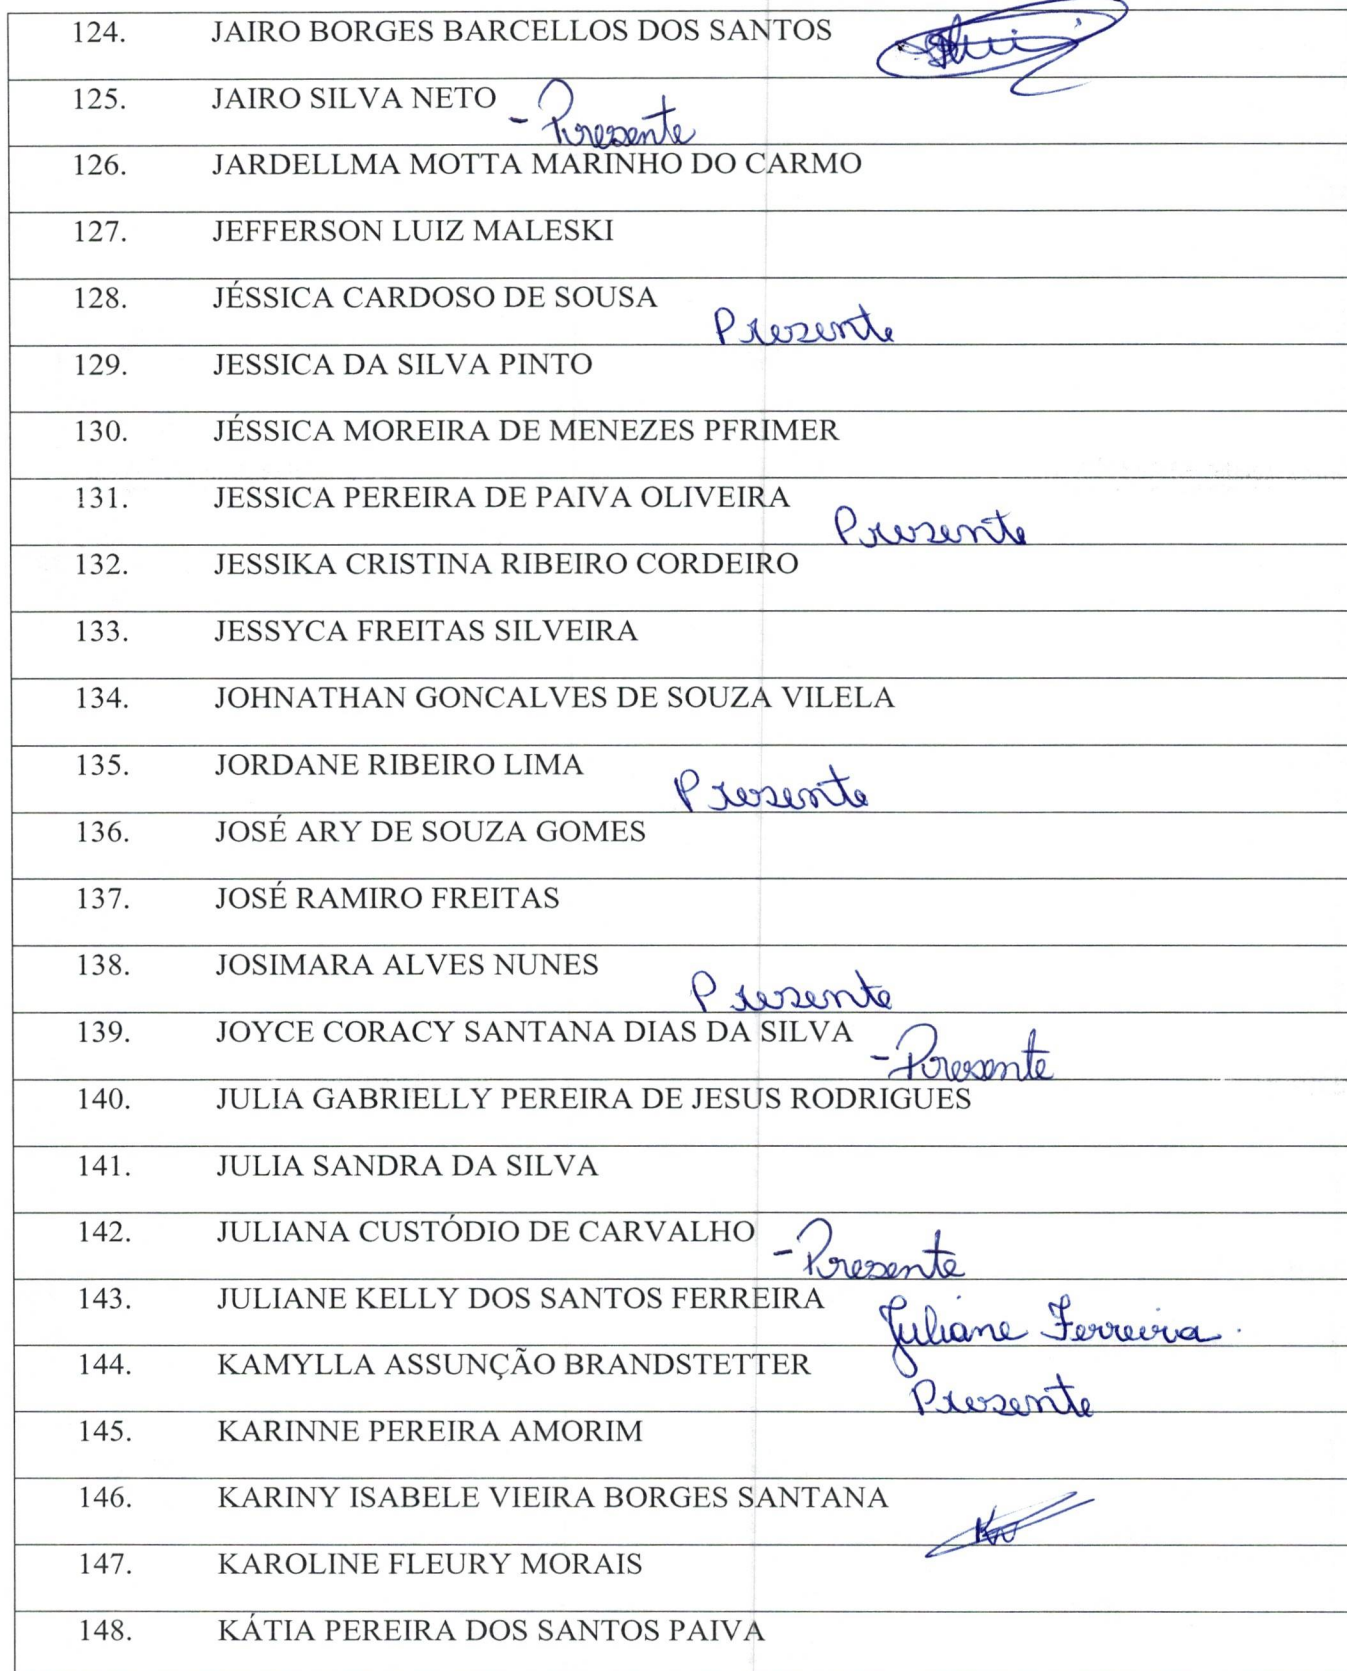 124. JAIRO BORGES BARCELLOS DOS SANTOS
125. JAIRO SILVA NETO - Presente
126. JARDELLMA MOTTA MARINHO DO CARMO
127. JEFFERSON LUIZ MALESKI
128. JÉSSICA CARDOSO DE SOUSA Presente
129. JESSICA DA SILVA PINTO
130. JÉSSICA MOREIRA DE MENEZES PFRIMER
131. JESSICA PEREIRA DE PAIVA OLIVEIRA Presente
132. JESSIKA CRISTINA RIBEIRO CORDEIRO
133. JESSYCA FREITAS SILVEIRA
134. JOHNATHAN GONCALVES DE SOUZA VILELA
135. JORDANE RIBEIRO LIMA Presente
136. JOSÉ ARY DE SOUZA GOMES
137. JOSÉ RAMIRO FREITAS
138. JOSIMARA ALVES NUNES Presente
139. JOYCE CORACY SANTANA DIAS DA SILVA - Presente
140. JULIA GABRIELLY PEREIRA DE JESUS RODRIGUES
141. JULIA SANDRA DA SILVA
142. JULIANA CUSTÓDIO DE CARVALHO - Presente
143. JULIANE KELLY DOS SANTOS FERREIRA Juliane Ferreira.
144. KAMYLLA ASSUNÇÃO BRANDSTETTER Presente
145. KARINNE PEREIRA AMORIM
146. KARINY ISABELE VIEIRA BORGES SANTANA
147. KAROLINE FLEURY MORAIS
148. KÁTIA PEREIRA DOS SANTOS PAIVA